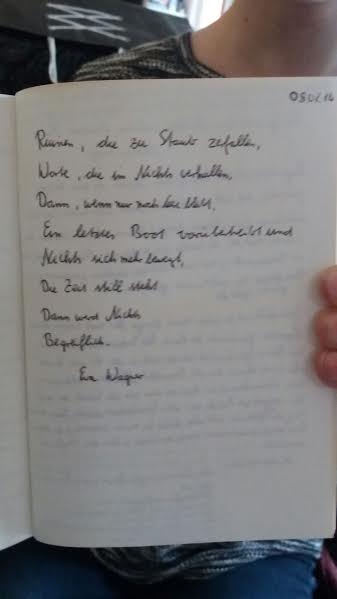 080216
Ruinen, die zu Staub zefallen,
Worte, die im Nichts verhallen,
Dann, wenn nur noch leere bleibt,
Ein letztes Boot vorübertreibt und
Nichts sich mehr bewegt,
Die Zeit still steht
Dann wird Nichts
Begreiflich.
Eva Wagner